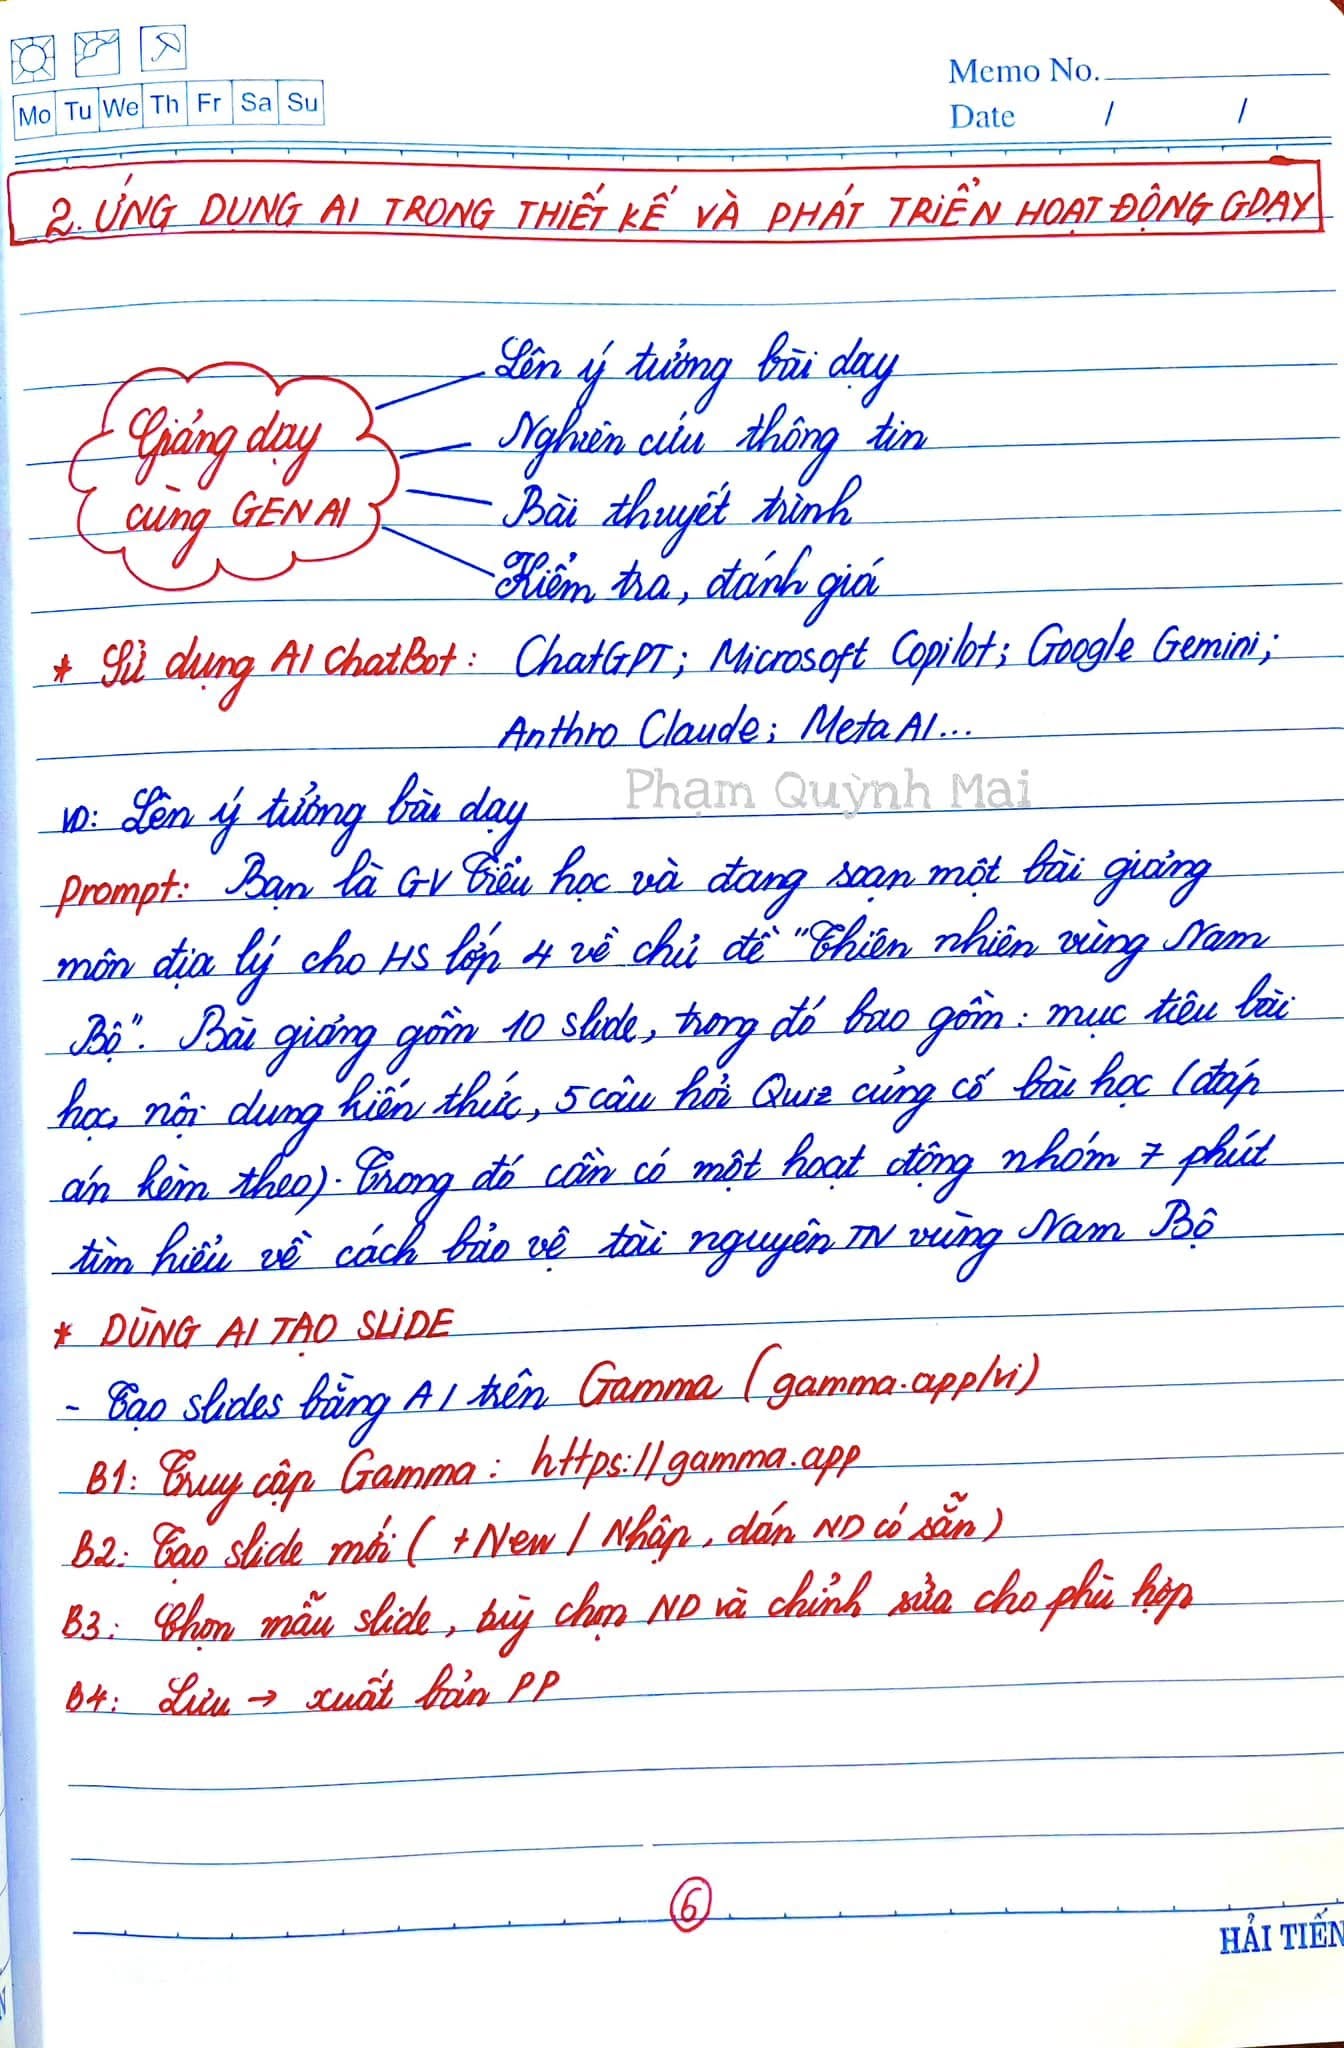 Mo Tu We Th Fr Sa Su
Memo No.
Date / /
2. ỨNG DỤNG AI TRONG THIẾT KẾ VÀ PHÁT TRIỂN HOẠT ĐỘNG GDẠY
Giảng dạy
cùng GEN AI
Lên ý tưởng bài dạy
Nghiên cứu thông tin
Bài thuyết trình
Kiểm tra, đánh giá
* Sử dụng AI ChatBot: ChatGPT; Microsoft Copilot; Google Gemini;
Anthro Claude; Meta AI...
Phạm Quỳnh Mai
VD: Lên ý tưởng bài dạy
Prompt: Bạn là GV Tiểu học và đang soạn một bài giảng
môn địa lý cho HS lớp 4 về chủ đề "Thiên nhiên vùng Nam
Bộ". Bài giảng gồm 10 slide, trong đó bao gồm: mục tiêu bài
học, nội dung kiến thức, 5 câu hỏi Quiz củng cố bài học (đáp
án kèm theo). Trong đó cần có một hoạt động nhóm 7 phút
tìm hiểu về cách bảo vệ tài nguyên TN vùng Nam Bộ
* DÙNG AI TẠO SLIDE
- Tạo slides bằng AI trên Gamma (gamma.app/vi)
B1: Truy cập Gamma: https://gamma.app
B2: Tạo slide mới ( +New / Nhập, dán ND có sẵn)
B3: Chọn mẫu slide, tùy chọn ND và chỉnh sửa cho phù hợp
B4: Lưu → xuất bản PP
6
HẢI TIẾN